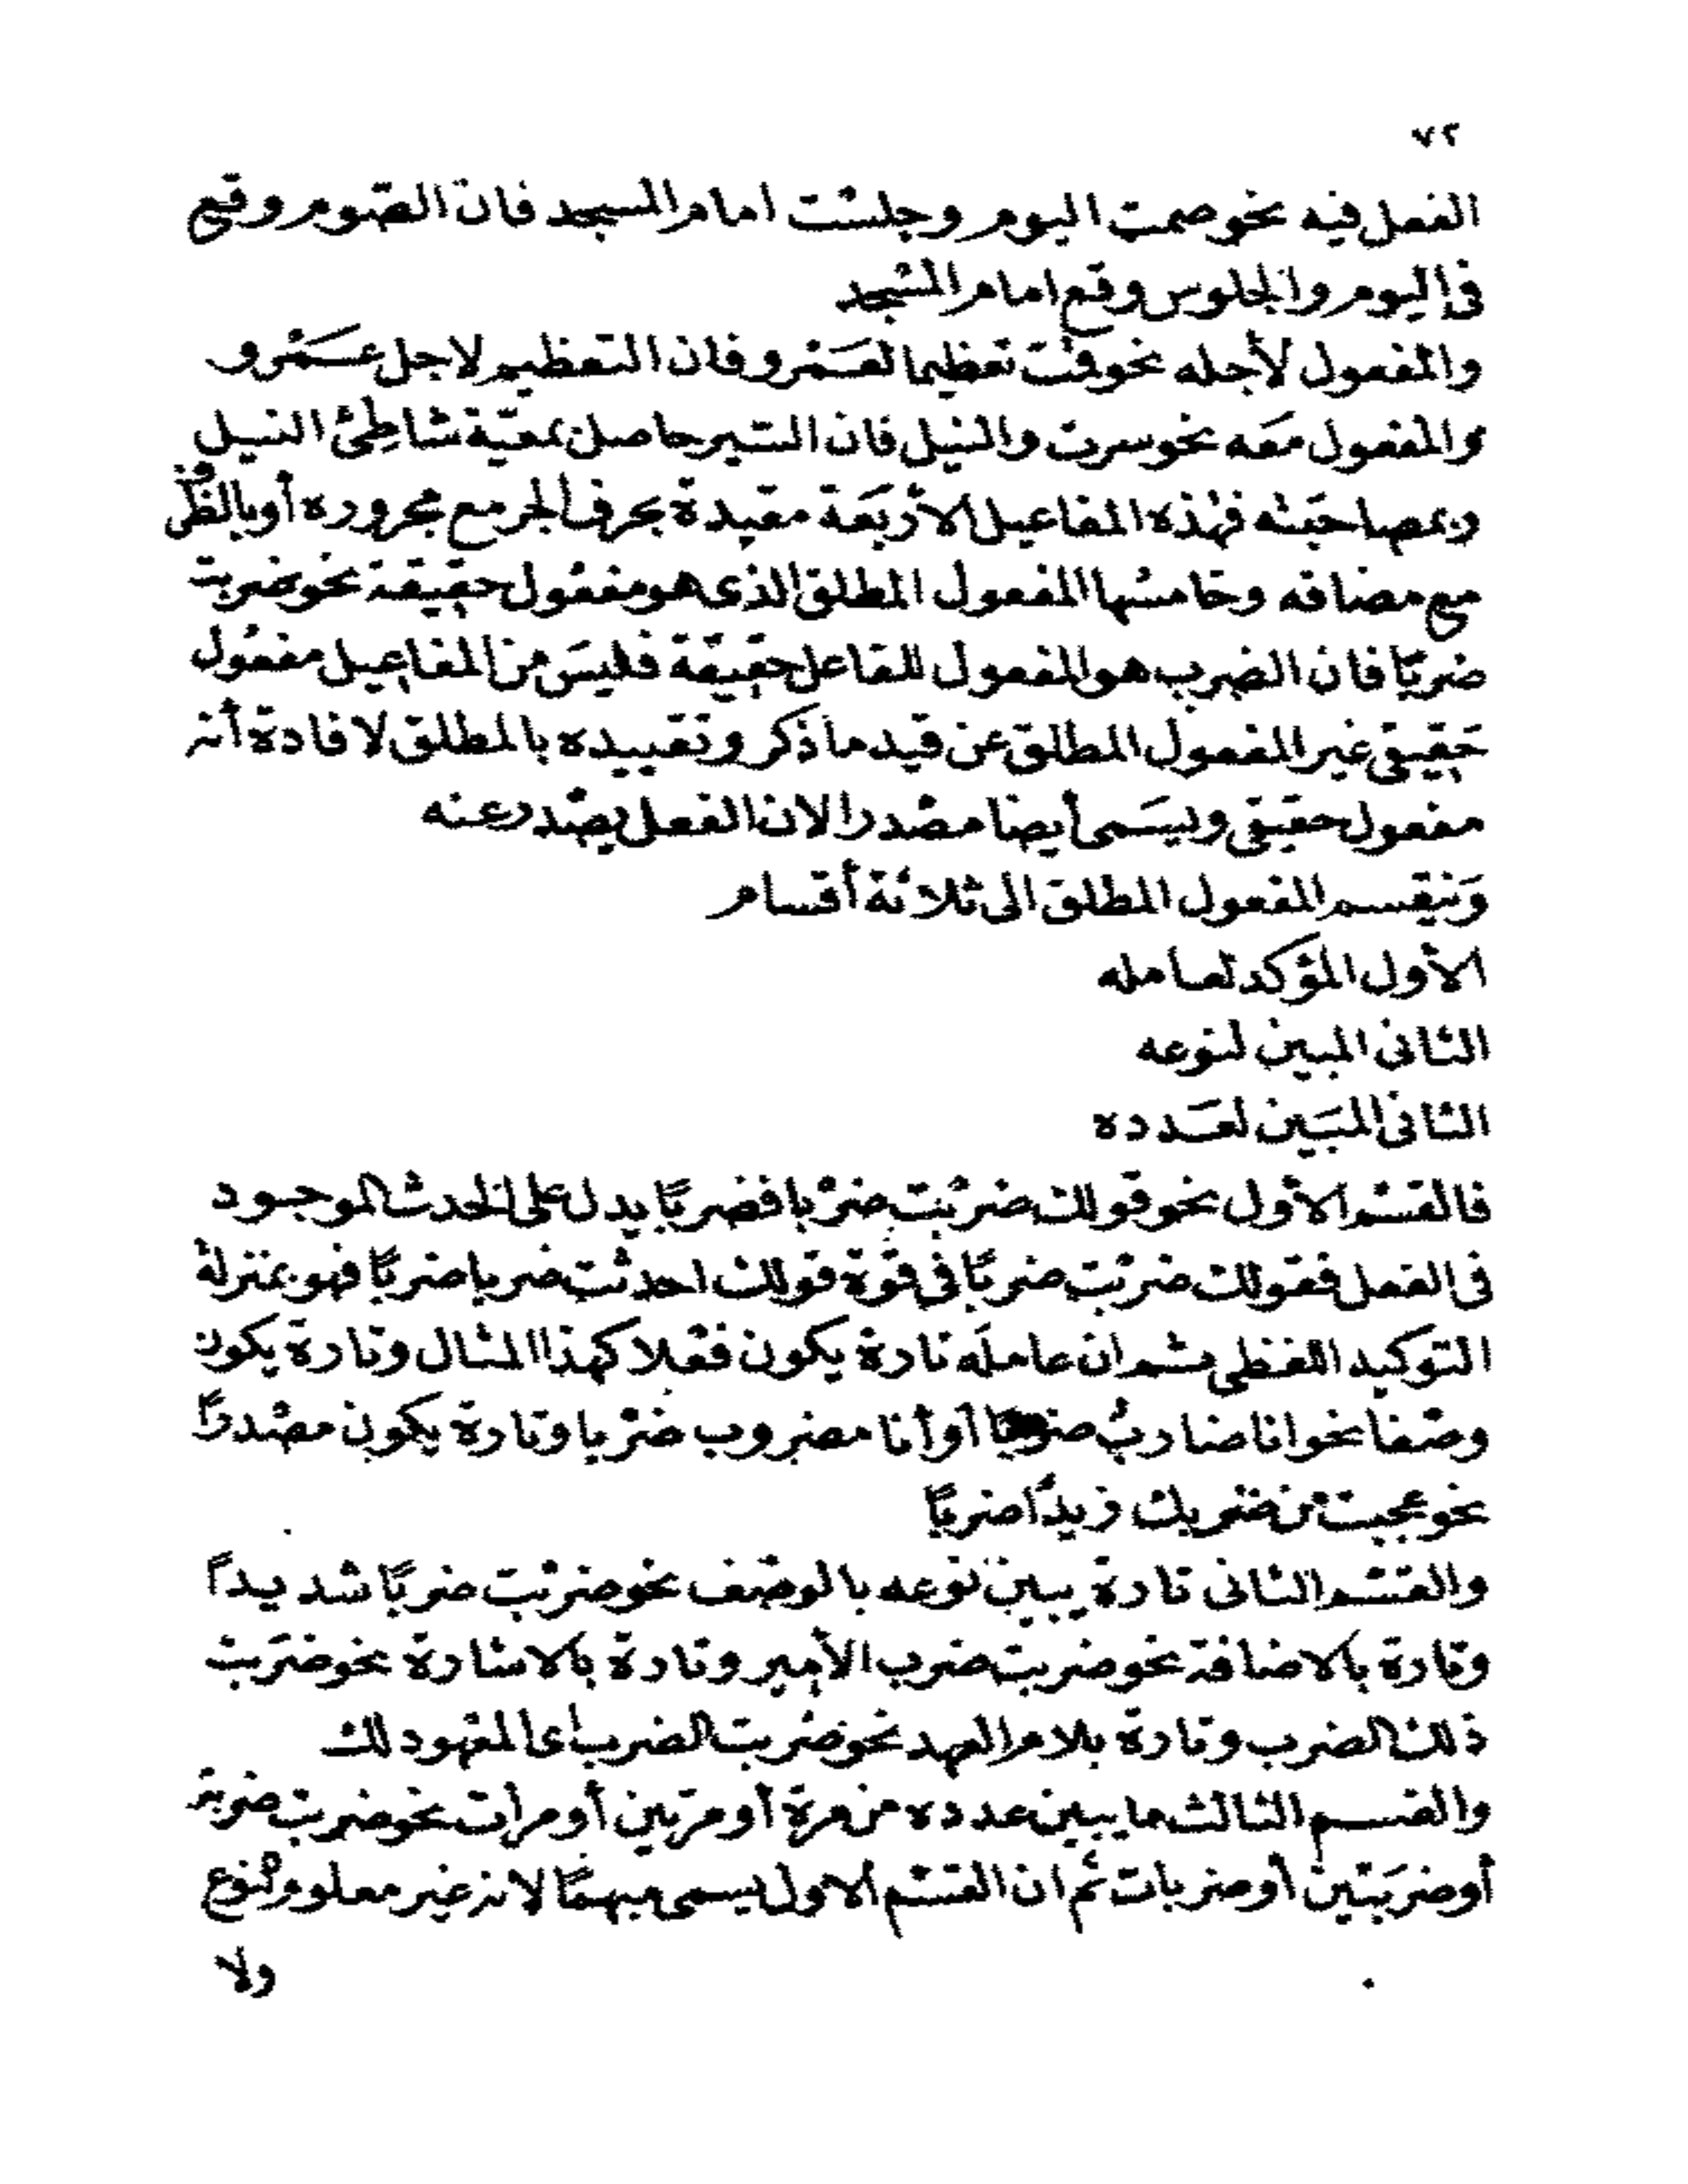 ٧٢
الفعل فيه نحو صمت اليوم وجلست امام المسجد فان الصّوم وقع
فى اليوم والجلوس وقع امام المسْجد
والمفعول لأجله نحو قمْت تعظيما لعَمْرو فان التعظيم لاجل عَمْرو
والمفعول مَعَه نحو سرت والنيل فان السّير حاصل بمعيّة شاطِئ النيل
وبمصاحبَته فهٰذه المفاعيل الأرْبَعَة مقيدة بحرف الجر مع مجروره أو بالظرف
مع مضافه وخامسُها المفعول المطلق الذى هو مفعُول حقيقة نحو ضربت
ضربًا فان الضرب هو المفعول للفاعل حقيقة فليسَ من المفاعِيل مفعُول
حَقيقى غير المفعول المطلق عن قيد ما ذكر وتقييده بالمطلق لافادة أنه
مفعول حقيقى ويسَمى أيضا مصْدرا لان الفعل يصْدر عنه
وَينقسم المفعول المطلق الى ثلاثة أقسام
الأول المؤكد لعامله
الثانى المبين لنوعه
الثانى المبَين لعَدده
فالقسْم الأول نحو قولك ضربْت ضرْبا فضربًا يدل على الحدث الموجود
فى الفعل فقولك ضربْت ضربًا فى قوّة قولك احدثت ضربا ضربًا فهو بمنزلة
التوكيد اللفظى ثم ان عاملَه تارة يكون فعْلا كهذا المثال وتارة يكون
وصْفا نحو انا ضاربٌ ضربًا أو أنا مضروب ضرْبا وتارة يكون مصْدرًا
نحو عجبت من ضربك زيدًا ضربًا
والقسْم الثانى تارة يبين نوعه بالوصْف نحو ضربْت ضربًا شديداً
وتارة بالاضافة نحو ضربت ضرب الأمِير وتارة بالاشارة نحو ضرَبت
ذلك الضرب وتارة بلام العهد نحو ضربت الضرب اى المعْهود لك
والقسم الثالث ما يبين عدده من مرة أو مرّتين أو مرات نحو ضربت ضربة
أو ضربَتَين أو ضربات ثم ان القسْم الاول يسمى مبهمًا لانه غير معلوم النوع
ولا